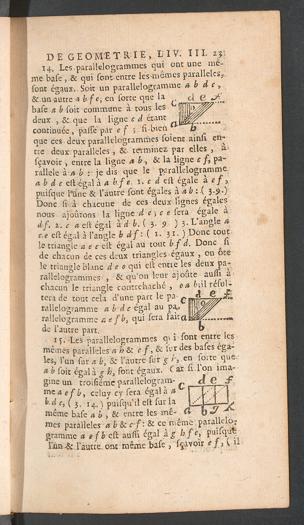 DE GEOMETRIE, LIV. III. 23
14. Les parallelogrammes qui ont une mê-
me base, & qui sont entre les mêmes paralleles,
sont égaux. Soit un parallelogramme a b d c,
& un autre a b f e, en sorte que la
base a b soit commune à tous les
deux, & que la ligne c d étant
continuée, passe par e f ; si bien
que ces deux parallelogrammes soient ainsi en-
tre deux paralleles, & terminez par elles, à
sçavoir, entre la ligne a b, & la ligne c f, pa-
rallele à a b : je dis que le parallelogramme
a b d c est égal à a b f e. 1. c d est égale à e f,
puisque l'une & l'autre sont égales à a b : ( 3. 9. )
Donc si à chacune de ces deux lignes égales
nous ajoûtons la ligne d e ; c e sera égale à
d f. 2. c a est égal à d b. ( 3. 9. ) 3. L'angle a
c e est égal à l'angle b d f : ( 1. 31. ) Donc tout
le triangle a c e est égal au tout b f d. Donc si
de chacun de ces deux triangles égaux, on ôte
le triangle blanc d e o qui est entre les deux pa-
rallelogrammes, & qu'on leur ajoûte aussi à
chacun le triangle contrehaché, o a b il résul-
tera de tout cela d'une part le pa-
rallelogramme a b d c égal au pa-
rallelogramme a e f b, qui sera fait
de l'autre part.
15. Les parallelogrammes qui sont entre les
mêmes paralleles a h & c f, & sur des bases éga-
les, l'un sur a b, & l'autre sur g h, en sorte que
a b soit égal à g h, sont égaux. Car si l'on ima-
gine un troisiéme parallelogram-
me a e f b, celuy cy sera égal à a
b d c, ( 3. 14. ) puisqu'il est sur la
même base a b, & entre les mê-
mes paralleles a b & c f : & ce même parallelo-
gramme a e f b est aussi égal à g h f e, puisque
l'un & l'autre ont même base, sçavoir e f, ( il
c d e f
a b
c d e f
a b
c d e f
a b g h